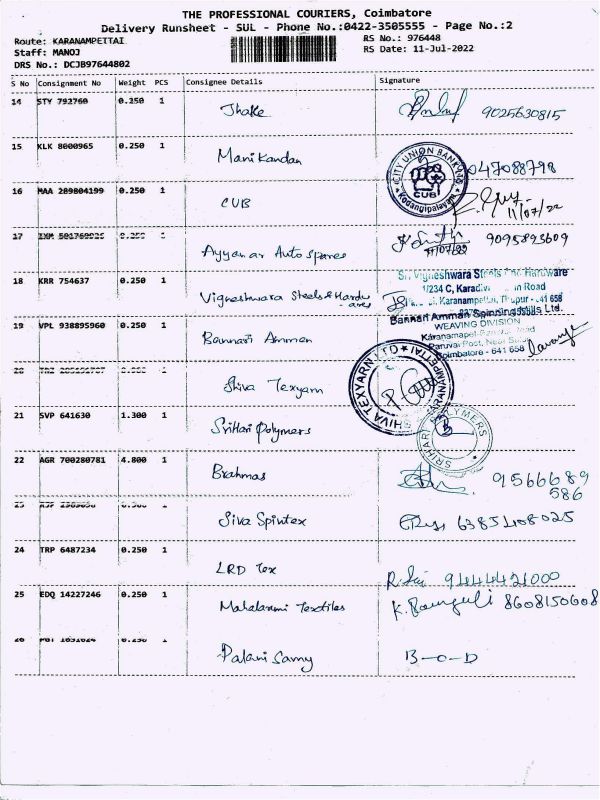 THE PROFESSIONAL COURIERS, Coimbatore
Delivery Runsheet - SUL - Phone No.:0422-3505555 - Page No.:2
Route: KARANAMPETTAI RS No.: 976448
Staff: MANOJ RS Date: 11-Jul-2022
DRS No.: DCJB97644802
S No Consignment No Weight PCS Consignee Details Signature
14 STY 792760 0.250 1 Jhake 9025630815
15 KLK 8000965 0.250 1 Mani Kandan 047088798
CITY UNION BANK
CUB
Kodangipalayam
16 MAA 289804199 0.250 1 CUB 11/07/22
17 1 Ayyanar Auto spares 9095893609
18 KRR 754637 0.250 1 Vigneshwara Steels & Hardwares
Sri Vigneshwara Steels Hardware
1/234 C, Road
Karanampettai, - 641 658
19 VPL 938895960 0.250 1 Bannari Amman
Bannari Amman Spinning Mills Ltd.
WEAVING DIVISION
Karanampet
Paruvai Post, Near
Coimbatore - 641 658
20 1 Shiva Texyarn
SHIVA TEXYARN LTD
KARANAMPETTAI
21 SVP 641630 1.300 1 SriHari Polymers
SRIHARI POLYMERS
22 AGR 700280781 4.800 1 Brahmas 9566689
586
1 Siva Spintex 6385408025
24 TRP 6487234 0.250 1 LRD Tex 9444421000
25 EDQ 14227246 0.250 1 Mahalaxmi Textiles 8608150608
1 Palani Samy B-O-D